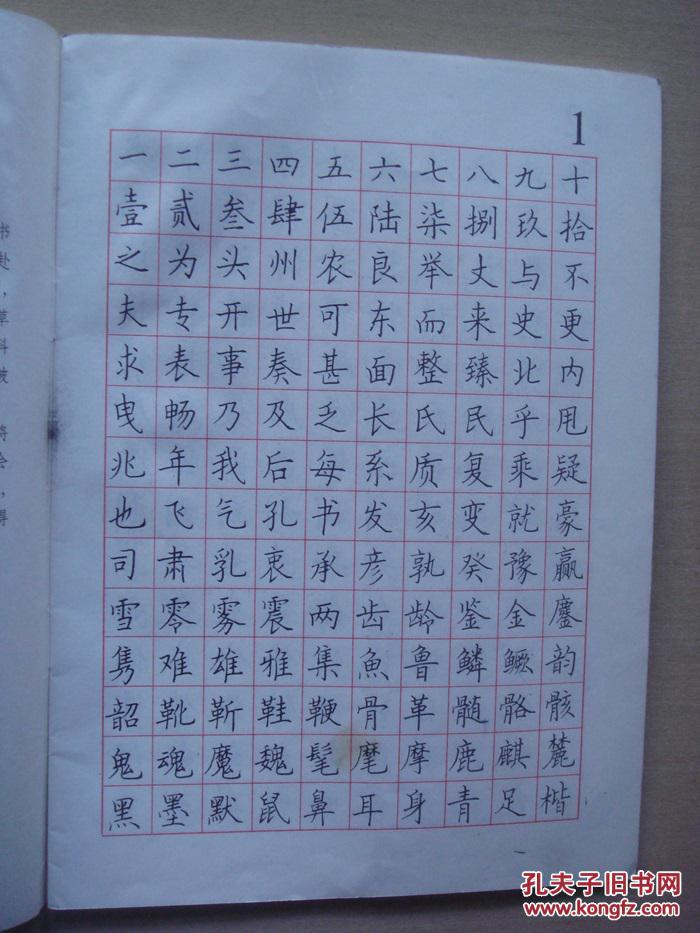 1
一二三四五六七八九十
壹贰叁肆伍陆柒捌玖拾
之为头州农良举丈与不
夫专开世可东而来史更
求表事奏甚面整臻北内
曳畅乃及乏长氏民乎甩
兆年我后每系质复乘疑
也飞气孔书发亥变就豪
司肃乳衷承彦孰癸豫赢
雪零雾震两齿龄鉴金鏖
隽难雄雅集魚鲁鳞鳜韵
韶靴靳鞋鞭骨革髓骼骸
鬼魂魔魏髦麾摩鹿麒麓
黑墨默鼠鼻耳身青足楷
书
赴
,
草
科
被
将
会
,
得
孔夫子旧书网
www.kongfz.com